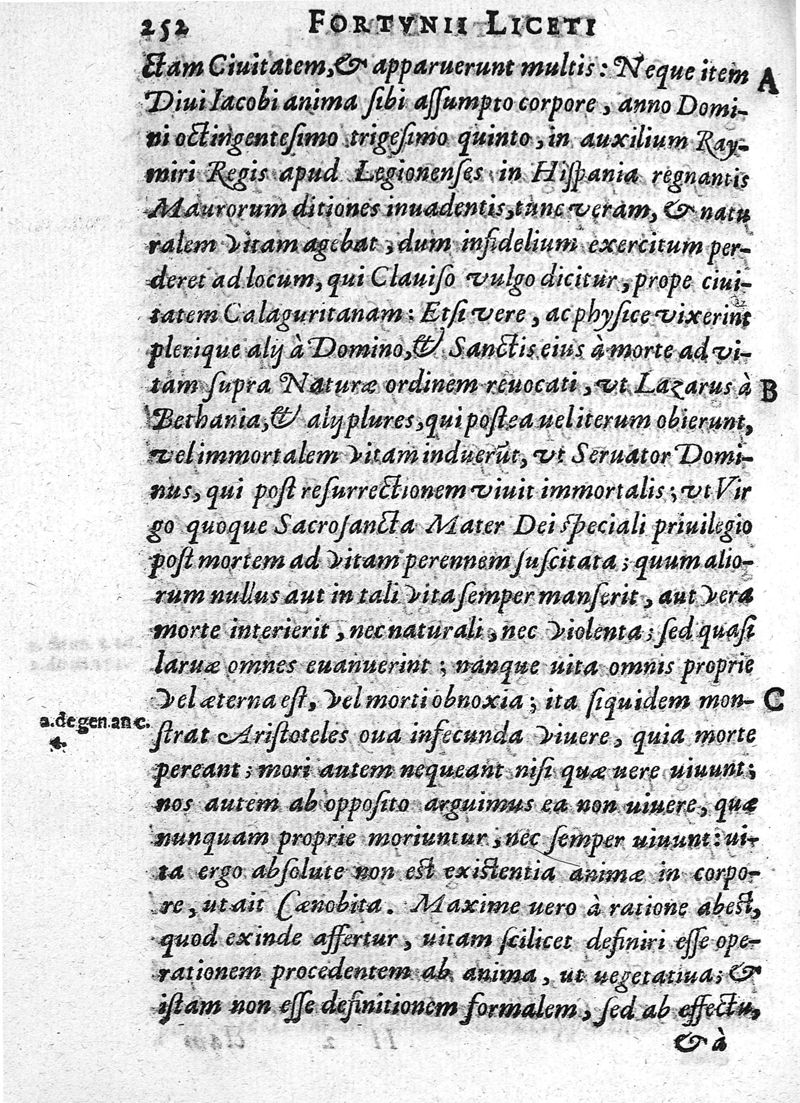 252 FORTVNII LICETI
ctam Ciuitatem, & apparuerunt multis: Neque item A
Diui Iacobi anima sibi assumpto corpore, anno Domi-
ni octingentesimo trigesimo quinto, in auxilium Ray-
miri Regis apud Legionenses in Hispania regnantis
Maurorum ditiones inuadentis, tunc veram, & natu
ralem vitam agebat, dum infidelium exercitum per-
deret ad locum, qui Clauiso vulgo dicitur, prope ciui-
tatem Calaguritanam: Etsi vere, ac physice vixerint
plerique alij à Domino, & Sanctis eius à morte ad vi-
tam supra Naturæ ordinem reuocati, vt Lazarus à B
Bethania, & alij plures, qui postea uel iterum obierunt,
vel immortalem vitam induerũt, vt Seruator Domi-
nus, qui post resurrectionem viuit immortalis; vt Vir
go quoque Sacrosancta Mater Dei speciali priuilegio
post mortem ad vitam perennem suscitata; quum alio-
rum nullus aut in tali vita semper manserit, aut vera
morte interierit, nec naturali, nec violenta; sed quasi
laruæ omnes euanuerint; nanque uita omnis proprie
vel æterna est, vel morti obnoxia; ita siquidem mon- C
2. de gen. an c.
4.
strat Aristoteles oua infecunda viuere, quia morte
pereant; mori autem nequeant nisi quæ uere uiuunt;
nos autem ab opposito arguimus ea non uiuere, quæ
nunquam proprie moriuntur, nec semper uiuunt: ui-
ta ergo absolute non est existentia animæ in corpo-
re, ut ait Cænobita. Maxime uero à ratione abest,
quod exinde affertur, uitam scilicet definiri esse ope-
rationem procedentem ab anima, ut uegetatiua; &
istam non esse definitionem formalem, sed ab effectu,
& à